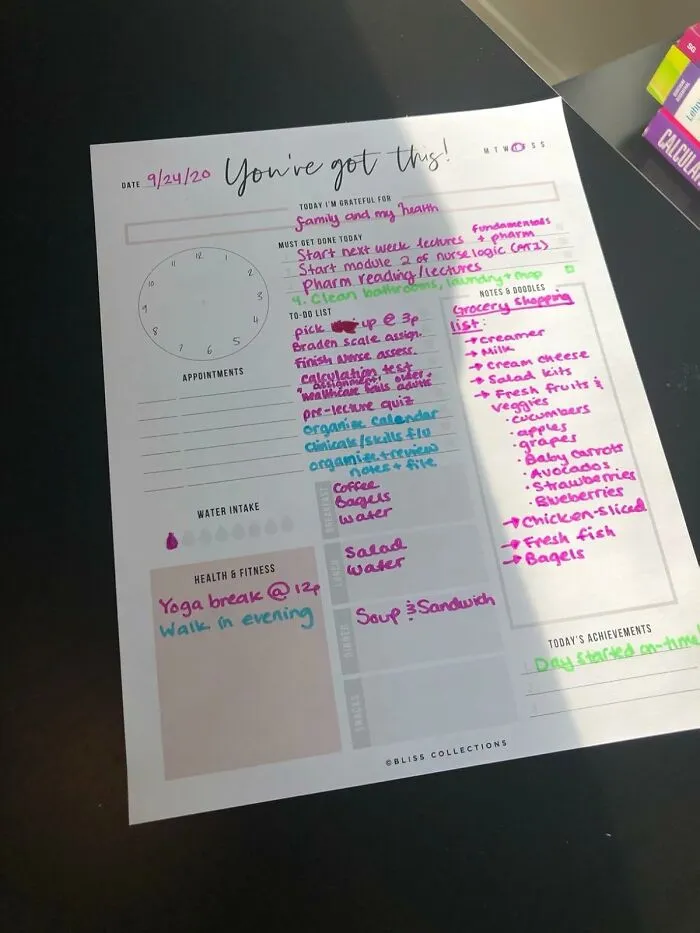 DATE 9/24/20
You've got this!
M T W T F S S
TODAY I'M GRATEFUL FOR
family and my health
MUST GET DONE TODAY
Start next week lectures fundamentals + pharm
Start module 2 of nurse logic (ATI)
Pharm reading/lectures
4. Clean bathrooms, laundry + mop
12
1
2
3
4
5
6
7
8
9
10
11
APPOINTMENTS
TO-DO LIST
pick up @ 3p
Braden scale assign.
Finish Nurse assess.
calculation test
assignment, older +
healthcare adults
pre-lecture quiz
organize calendar
clinicals/skills f/u
organize + review
notes + file
NOTES & DOODLES
Grocery shopping
list:
→ creamer
→ Milk
→ Cream cheese
→ Salad kits
→ Fresh fruits &
veggies
· cucumbers
· apples
· grapes
· Baby carrots
· Avocados
· Strawberries
· Blueberries
→ Chicken-Sliced
→ Fresh fish
→ Bagels
WATER INTAKE
HEALTH & FITNESS
Yoga break @ 12p
Walk in evening
BREAKFAST
Coffee
Bagels
Water
LUNCH
Salad
Water
DINNER
Soup & Sandwich
SNACKS
TODAY'S ACHIEVEMENTS
1. Day started on-time!
2.
3.
©BLISS COLLECTIONS
SG
CALCULA